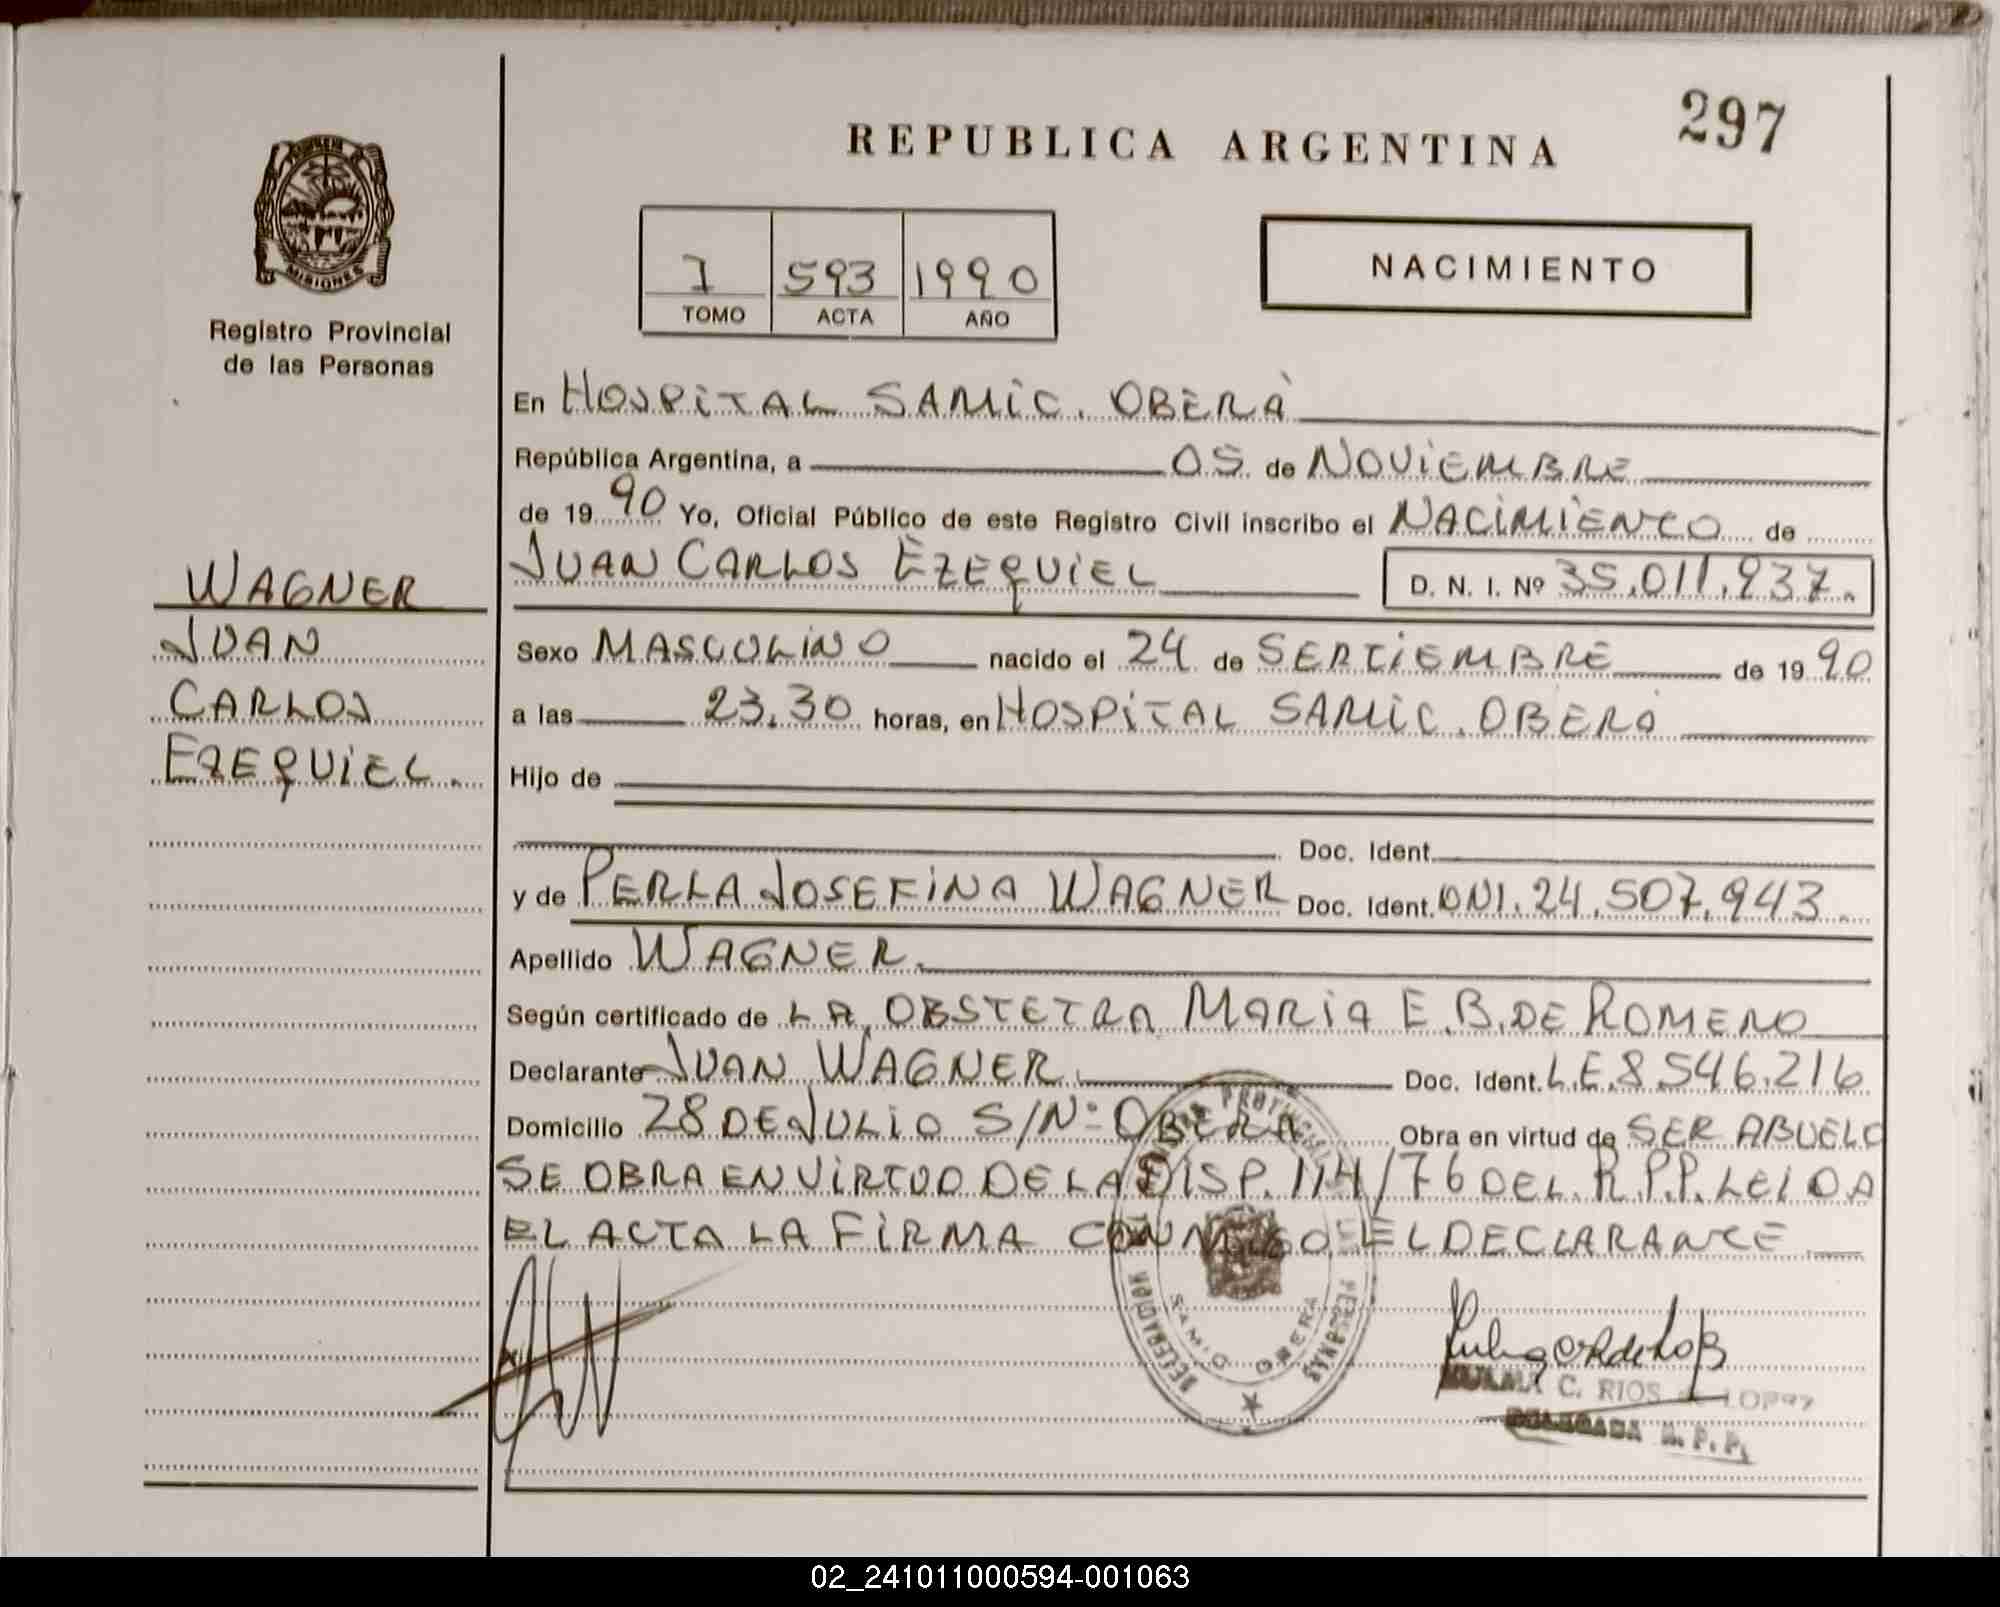 297
REPUBLICA ARGENTINA
MISIONES
Registro Provincial
de las Personas
I 593 1990
TOMO ACTA AÑO
NACIMIENTO
En HOSPITAL SAMIC. OBERÁ
República Argentina, a 05 de NOVIEMBRE
de 1990 Yo, Oficial Público de este Registro Civil inscribo el NACIMIENTO de
JUAN CARLOS EZEQUIEL D. N. I. Nº 35.011.937.
WAGNER
JUAN
CARLOS
EZEQUIEL.
Sexo MASCULINO nacido el 24 de SEPTIEMBRE de 1990
a las 23.30 horas, en HOSPITAL SAMIC. OBERÁ
Hijo de
Doc. Ident.
y de PERLA JOSEFINA WAGNER Doc. Ident. DNI. 24.507.943.
Apellido WAGNER.
Según certificado de LA OBSTETRA MARIA E. B. DE ROMERO
Declarante JUAN WAGNER. Doc. Ident. L.E. 8.546.216
Domicilio 28 DE JULIO S/Nº OBERÁ Obra en virtud de SER ABUELO
SE OBRA EN VIRTUD DE LA DISP. 114/76 DEL R.P.P. LEIDA
EL ACTA LA FIRMA CONMIGO EL DECLARANTE
SAMIC OBERA
ZULMA C. RIOS de LOPEZ
DELEGADA R. P. P.
02_241011000594-001063